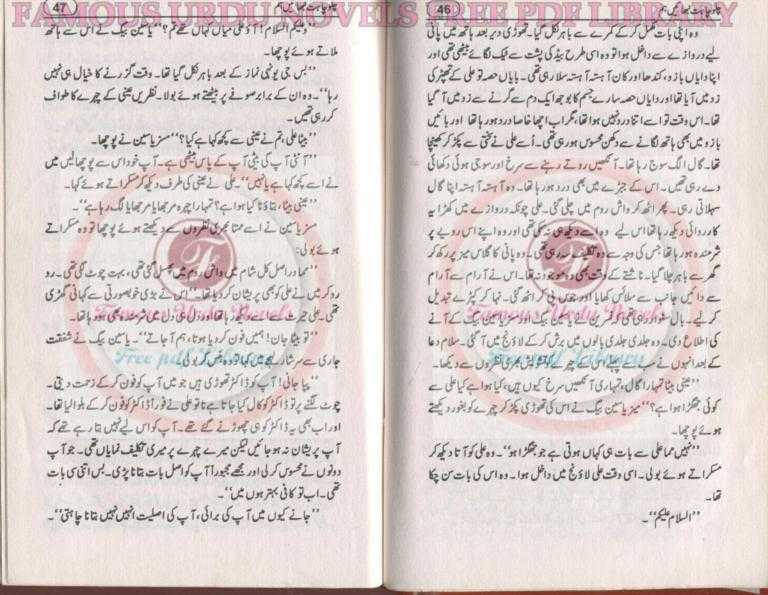 FAMOUS URDU NOVELS FREE PDF LIBRARY
46
وہ اپنی بات مکمل کر کے کمرے سے باہر نکل گیا۔ تھوڑی دیر بعد ہاتھ میں پانی
لیے دروازے سے داخل ہوا تو وہ اسی طرح بیڈ کی پشت سے ٹیک لگائے بیٹھی تھی اور
اپنا دایاں بازو، کندھا اور کان آہستہ آہستہ سہلا رہی تھی۔ بایاں حصہ تو علی کے تھپڑ کی
زد میں آیا تھا اور دایاں حصہ سارے جسم کا بوجھ ایک دم سے گرنے سے زد میں آ گیا
تھا۔ اس وقت تو اسے اتنا درد نہیں ہوا تھا، مگر اب اچھا خاصا درد ہو رہا تھا اور بائیں
بازو میں بھی ہاتھ لگانے سے دکھن محسوس ہو رہی تھی۔ اُسے علی نے سختی سے پکڑ کر کھینچا
تھا۔ گال الگ سوج رہا تھا۔ آنکھیں روتے رہنے سے سرخ اور سوجی ہوئی دکھائی
دے رہی تھیں۔ اس کے جبڑے میں بھی درد ہو رہا تھا۔ وہ آہستہ آہستہ اپنا گال
سہلاتی رہی۔ پھر اٹھ کر واش روم میں چلی گئی۔ علی چونکہ دروازے میں کھڑا یہ
کارروائی دیکھ رہا تھا اس لیے وہ اسے دیکھ ہی نہ سکی تھی اور وہ اپنے اس رویے پر
شرمندہ ہو رہا تھا جس کی وجہ سے وہ تکلیف سہہ رہی تھی۔ وہ پانی کا گلاس میز پر رکھ کر
گھر سے باہر چلا گیا۔ ناشتے کے وقت بھی وہ موجود نہ تھا۔ اس نے آرام سے آرام
سے دائیں جانب سے سلائس کھایا اور جوس پی کر اٹھ گئی۔ نہا کر کپڑے تبدیل
کر لیے۔ بال سنوار رہی تھی کہ نسرین نے یاسین بیگ اور مسز یاسین بیگ کے آنے
کی اطلاع دی۔ وہ جلدی جلدی بالوں میں برش کر کے لاؤنج میں آ گئی۔ سلام دعا
کے بعد انہوں نے سب سے پہلے اس کے چہرے کو تشویش بھری نظروں سے دیکھا۔
’’عینی بیٹا تمہارا گال، تمہاری آنکھیں سرخ کیوں ہیں، کیا ہوا ہے کیا علی سے
کوئی جھگڑا ہوا ہے؟‘‘ مسز یاسین بیگ نے اس کی ٹھوڑی پکڑ کر چہرے کو بغور دیکھتے
ہوئے پوچھا۔
’’نہیں مما علی سے بات ہی کہاں ہوتی ہے جو جھگڑا ہو‘‘۔ وہ علی کو آتا دیکھ کر
مسکراتے ہوئے بولی۔ اسی وقت علی لاؤنج میں داخل ہوا۔ وہ اس کی بات سن چکا
تھا۔
’’السلام علیکم‘‘۔
47
’’وعلیکم السلام! آؤ علی میاں کہاں گئے تھے؟‘‘ یاسین بیگ نے اس سے ہاتھ
ملاتے ہوئے پوچھا۔
’’بس جی یونہی نماز کے بعد باہر نکل گیا تھا۔ وقت گزرنے کا خیال ہی نہیں
رہا‘‘۔ وہ ان کے برابر صوفے پر بیٹھتے ہوئے بولا۔ نظریں عینی کے چہرے کا طواف
کر رہی تھیں۔
’’بیٹا علی، تم نے عینی سے کچھ کہا ہے کیا؟‘‘ مسز یاسین نے پوچھا۔
’’آنٹی آپ کی بیٹی آپ کے پاس بیٹھی ہے۔ آپ خود اس سے پوچھ لیں میں
نے اسے کچھ کہا ہے یا نہیں‘‘۔ علی نے عینی کی طرف دیکھ کر مسکراتے ہوئے کہا۔
’’عینی بیٹا، بتاؤ نا کیا ہوا ہے؟ تمہارا چہرہ مرجھایا مرجھایا لگ رہا ہے‘‘۔
مسز یاسین نے اسے ممتا بھری نظروں سے دیکھتے ہوئے پوچھا تو وہ مسکراتے
ہوئے بولی:
’’مما دراصل کل شام میں واش روم میں پھسل گئی تھی، بہت چوٹ لگی تھی۔ رو
رو کر میں نے علی کو بھی پریشان کر دیا تھا‘‘۔ اس نے بڑی خوبصورتی سے کہانی گھڑی
تھی۔ علی حیرت سے
’’تو بیٹا جان! ہمیں فون کر دیا ہوتا، ہم آ جاتے‘‘۔ یاسین بیگ نے شفقت
’’پپا جانی! آپ کو ڈاکٹر تھوڑی ہیں جو میں آپ کو فون کر کے زحمت دیتی۔
چوٹ لگنے پر تو ڈاکٹر کو کال کیا جاتا ہے نا تو علی نے فوراً ڈاکٹر کو فون کر کے بلوا لیا تھا۔
اور اب بھی یہ ڈاکٹر کو ہی چھوڑنے گئے تھے۔ آپ کو اس لیے نہیں بتا رہے تھے کہ
آپ پریشان نہ ہو جائیں لیکن میرے چہرے پر میری تکلیف نمایاں تھی۔ جو آپ
دونوں نے محسوس کر لی اور مجھے مجبوراً آپ کو اصل بات بتانا پڑی۔ بس اتنی سی بات
تھی۔ اب تو کافی بہتر ہوں میں‘‘۔
’’جانے کیوں میں آپ کی برائی، آپ کی اصلیت انہیں نہیں بتانا چاہتی‘‘۔
Famous Urdu Novels
Free pdf Library
Famous Urdu Novels
Free pdf Library